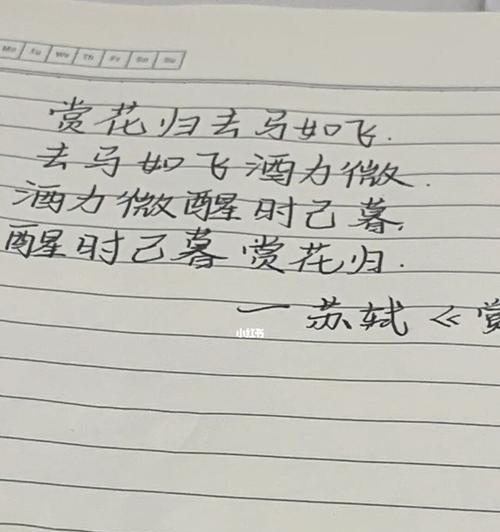 Mo Tu We Th Fr Sa Su
赏花归去马如飞.
去马如飞酒力微.
酒力微醒时已暮,
醒时已暮赏花归.
一苏轼《赏
小红书